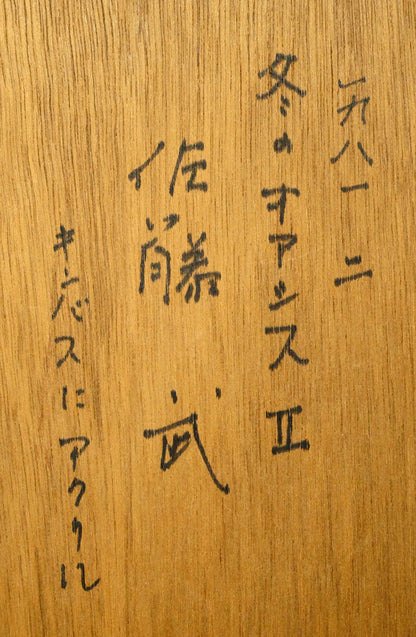 一九八一 二
冬のオアシスⅡ
佐藤 武
キャンバスにアクリル